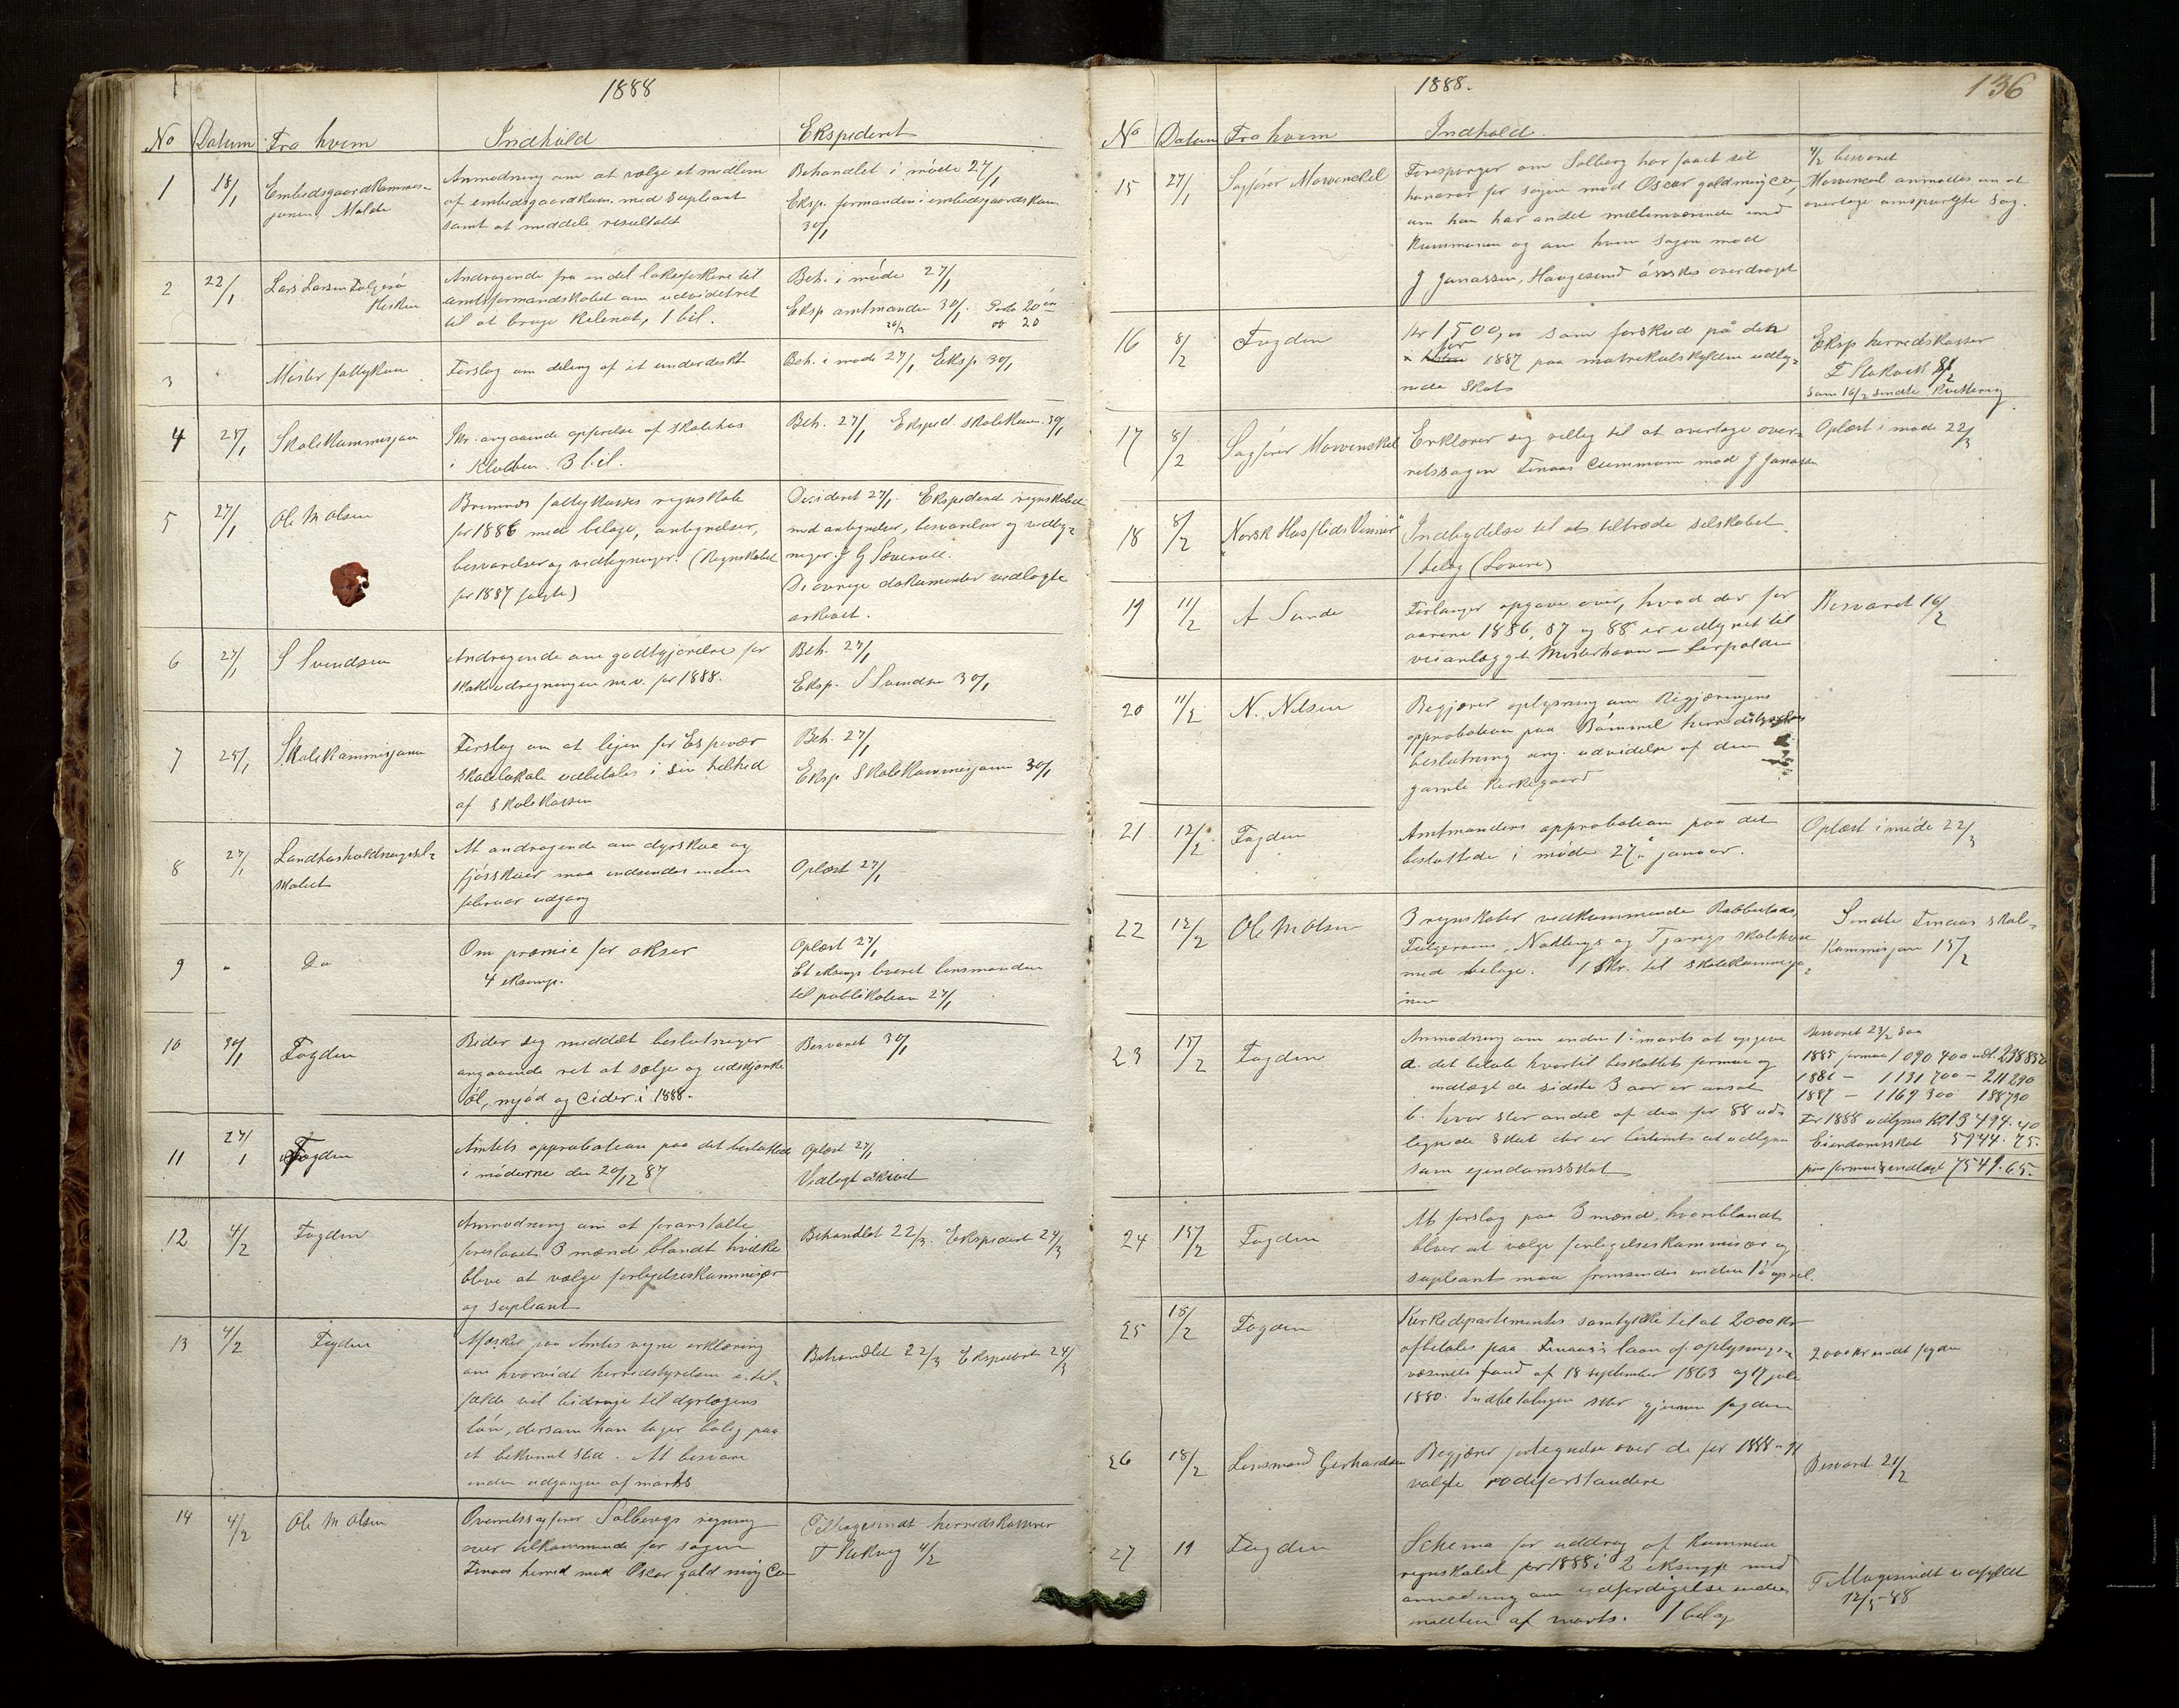 1888
No Datum Fra hvem Indhold Ekspederet
1 18/1 Embedsgaardkommis-
jonen, Molde
Anmodning om at vælge et medlem
af embedsgaardkom. med supleant
samt at meddele resultatet
Behandlet i møde 27/1
Eksp. formanden i embedsgaardskom
30/1
2 22/1 Lars Larsen
Andragende fra en del laksefiskere til
amtsformandskabet om udvidet ret
til at bruge kilenot, 1 bil.
Beh. i møde 27/1
Eksp amtmanden 30/1. Porto 20 øre
20
3 " Moster fattigkom
Forslag om deling af et underdistrikt
Beh. i møde 27/1 Eksp 30/1
4 25/1 Skolekommisjonen
Skr. angaaende opførelse af skolehus
i 3 bil.
Beh. 27/1 Eksped. skolekom. 30/1
5 27/1 Ole M Olsen
Bremnes fattigkasses regnskab
for 1886 med bilage, antegnelser,
besvarelser og vedtegninger. (Regnskabet
for 1887 fulgte)
Decideret 27/1. Ekspederet regnskabet
med antegnelser, besvarelser og vedteg-
ninger. J G Særvold.
De øvrige dokumenter vedlagte
arkivet.
6 27/1 S Svendsen
Andragende om godtgjørelse for
skatteudregningen m.v. for 1888.
Beh. 27/1
Eksp. S Svendsen 30/1
7 25/1 Skolekommisjonen
Forslag om at lejen for Espevær
skolelokale udbetales i sin helhed
af skolekassen
Beh. 27/1
Eksp Skolekommisjonen 30/1
8 27/1 Landhusholdningssel-
skabet
At andragende om dyrskue og
fjøsskuer maa indsendes inden
februar udgang
Oplæst 27/1
9 " Do
Om præmie for okser
4 eksemp.
Oplæst 27/1
Et eksemp leveret lensmanden
til publikation 27/1
10 30/1 Fogden
Beder sig meddelt beslutninger
angaaende ret at sælge og udskjænke
øl, mjød og cider i 1888.
Besvaret 30/1
11 27/1 Fogden
Amtets approbation paa det besluttede
i møderne den 20/12 87
Oplæst 27/1
Vedlagt arkivet
12 4/2 Fogden
Anmodning om at foranstalte
foreslaaet 3 mænd blandt hvilke
blive at vælge forligelseskommisær
og supleant
Behandlet 22/3. Ekspederet 24/3
13 4/2 Fogden
Æsker paa Amtets vegne erklæring
om hvorvidt herredsstyrelsen i til-
fælde vil bidrage til dyrlægens
løn, dersom han tager bolig paa
et bekvemt sted. At besvare
inden udgangen af marts
Behandlet 22/3 Ekspederet 24/3
14 4/2 Ole M Olsen
Overretssagfører Solbergs regning
over tilkommende for sagen
Finaas herred mod Oscar gold ming Co
Tilbagesendt herredskasserer
4/2
1888. 136
No Datum Fra hvem Indhold.
15 27/1 Sagfører Mowinckel
Forespørger om Solberg har faaet sit
honorar for sagen mod Oscar gold ming co,
om han har andet mellemværende med
kommunen og om hvem sagen mod
J Jonassen, Haugesund ønskes overdraget
4/2 besvaret
Mowinckel anmodes om at
overtage omspurgte sag.
16 8/2 Fogden
Kr 1500,00 som forskud på den
for 1887 paa matrikulskylden udlig-
nede skat
Eksp herredskasserer
som 16/2 sendte kvittering
17 8/2 Sagfører Mowinckel
Erklærer sig villig til at overtage over-
retssagen Finaas commun mod J Jonassen
Oplæst i møde 22/3
18 8/2 "Norsk Husflids Venner"
Indbydelse til at tiltræde selskabet
1 bilag (Lovene)
19 11/2 A Sunde
Forlanger opgave over, hvad der for
aarene 1886, 87 og 88 er udlignet til
veianlægget Mosterhavn —
Besvaret 16/2
20 11/2 N. Nilsen
Begjærer oplysning om Regjæringens
approbation paa Bømmel
beslutning ang. udvidelse af den
gamle kirkegaard
21 12/2. Fogden
Amtmandens approbation paa det
besluttede i møde 27. januar.
Oplæst i møde 22/3
22 12/2 Ole M Olsen
3 regnskaber vedkommende
og skolekredse
med bilage. 1 skr. til skolekommisjo-
nen
Sendte Finaas skole-
kommisjon 15/2
23 15/2 Fogden
Anmodning om inden 1 marts at opgive
a. det beløb hvortil beskattet formue og
indtægt de sidste 3 aar er ansat
b. hvor stor andel af den for 88 ud-
lignede skat der er bestemt at udlignes
som ejendomsskat
Besvaret 23/2 saa
1885 formue 1090400 indt. 238850
1886 — 1131700 — 211290
1887 — 1169300 188790
For 1888 udlignes kr 13494.40
Eiendomsskat 5944.75.
paa formue & indtægt 7549.65.
24 15/2 Fogden
At forslag paa 3 mænd, hvoriblandt
bliver at vælge forligelseskommisær og
supleant maa fremsendes inden 1 april.
25 18/2 Fogden
Kirkedepartementets samtykke til at 2000 kr
afbetales paa Finaas's laan af oplysnings-
væsenets fond af 18 september 1863 og 17 juli
1880. Indbetalingen sker gjennem fogden
2000 kr sendt fogden
26 18/2 Lensmand Gerhardsen
Begjærer fortegnelse over de for 1888-91
valgte rodeforstandere
Besvaret 21/2
27 19 Fogden
Schema for uddrag af kommune
regnskabet for 1888 i 2 eksempl med
anmodning om udfærdigelse inden
midten af marts. 1 bilag
Tilbagesendt udfyldt
12/5-88